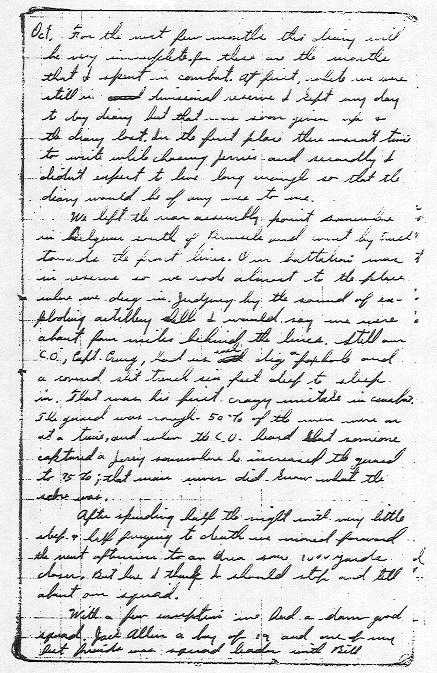 Oct. For the next few months this diary will
be very incomplete for these are the months
that I spent in combat. At first, while we were
still in divisional reserve I kept my day
to day diary but that was soon given up &
the diary lost. In the first place there wasn't time
to write while chasing jerries and secondly I
didn't expect to live long enough so that the
diary would be of any use to me.
We left the rear assembly point somewhere
in Belgium south of Brussels and went by truck
towards the front lines. Our battalion was
in reserve so we rode almost to the place
where we dug in. Judging by the sound of ex-
ploding artillery shells I would say we were
about four miles behind the lines. Still our
C.O., Capt. Craig, had us dig foxholes and
a round slit trench six feet deep to sleep
in. That was his first crazy mistake in combat.
The guard was rough. 50% of the men were on
at a time, and when the C.O. heard that someone
captured a jerry somewhere he increased the guard
to 75%; that man never did know what the
score was.
After spending half the night with very little
sleep & half freezing to death we moved forward
the next afternoon to an area some 1000 yards
closer. But here I think I should stop and tell
about our squad.
With a few exceptions we had a damn good
squad. Jack Allen a boy of 19 and one of my
best friends was squad leader with Bill